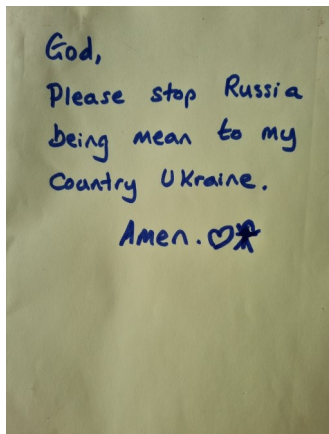 God,
Please stop Russia
being mean to my
Country Ukraine.
Amen.